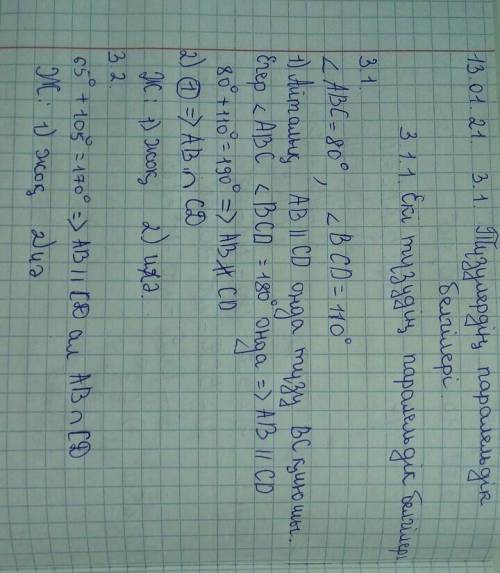 13.01.21. 3.1 Түзулердің паралельдік
белгілері.
3.1.1. Екі түзудің паралельдік белгілері
3.1.
∠ABC = 80°, ∠BCD = 110°
1) Айталық AB || CD онда түзу BC қиюшы.
Егер ∠ABC ∠BCD = 180° онда => AB || CD
80° + 110° = 190° => AB ∦ CD
2) ① => AB ∩ CD
Ж: 1) жоқ 2) иә.
3.2.
65° + 105° = 170° => AB || CD ал AB ∩ CD
Ж: 1) жоқ 2) иә